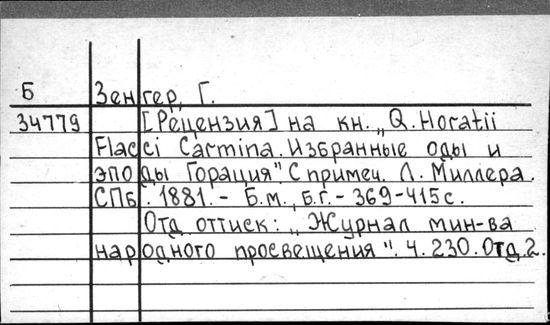 Б Зенгер, Г.
34779 [Рецензия] на кн. „Q. Horatii
Flacci Carmina. Избранные оды и
эподы Горация". С примеч. Л. Миллера.
СПб. 1881. - Б.м., б.г. - 369-415 с.
Отд. оттиск: „Журнал мин-ва
народного просвещения". Ч. 230. Отд. 2.